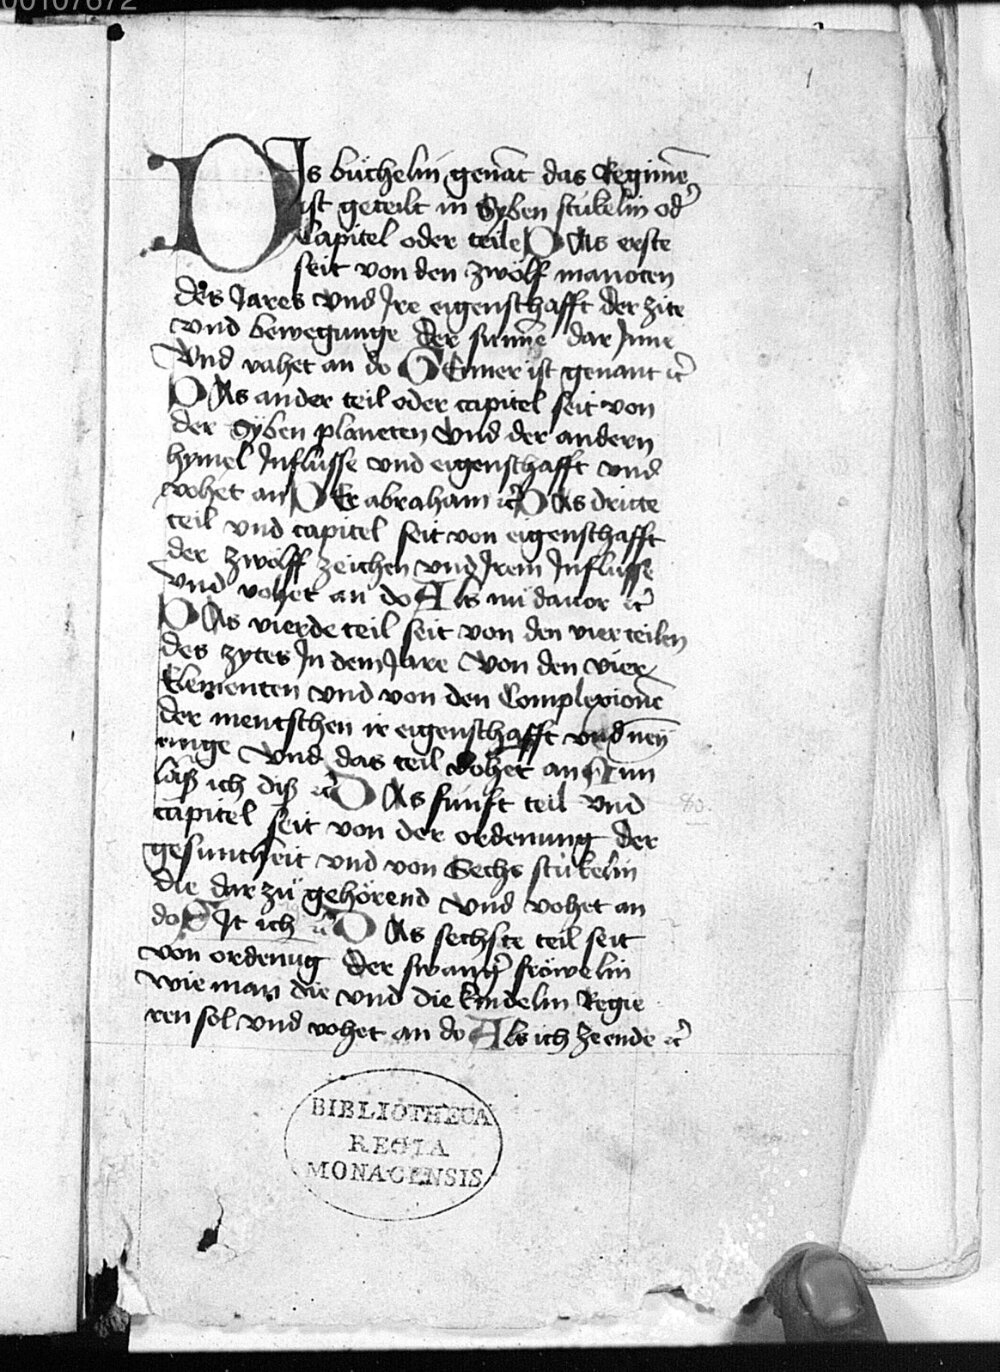 00107672
1
DIs büchelin genāt das Regimē
ist geteilt in Syben stükelin od̄
Capitel oder teile DAs erste
seit von den zwölf manoten
des Jares vnd Jre eigenschafft der zite
vnd bewegunge der sunnē dar Jnne
Vnd vahet an do GEnner ist genant ꝛc̄
DAs ander teil oder capitel seit von
der Syben planeten Vnd der andern
hymel Jnflüsse vnd eigenschafft vnd
vohet an DEr abraham ꝛc̄ DAs dritte
teil vnd capitel seit von eigenschafft
der zwölff zeichen vnd Jrem Jnflusse
vnd vohet an do Als nu dauor ꝛc̄
DAs vierde teil seit von den vier teilen
des zytes Jn dem Jare Von den vier
Elementen vnd von den Complexionē
der mentschen ir eigenschafft vnd ney
runge Vnd das teil vohet an Nun
laß ich diß ꝛc̄ DAs fünft teil Vnd
capitel seit von der ordenung der
gesuntheit vnd von Sechs stükelin
die dar zü gehörend Vnd vohet an
do SIt ich ꝛc̄ DAs sechste teil seit
von ordenūg der swanḡ fröwelin
wie man die vnd die kindelin Regie
ren sol vnd vohet an do Als ich ze ende ꝛc̄
BIBLIOTHECA
REGIA
MONACENSIS